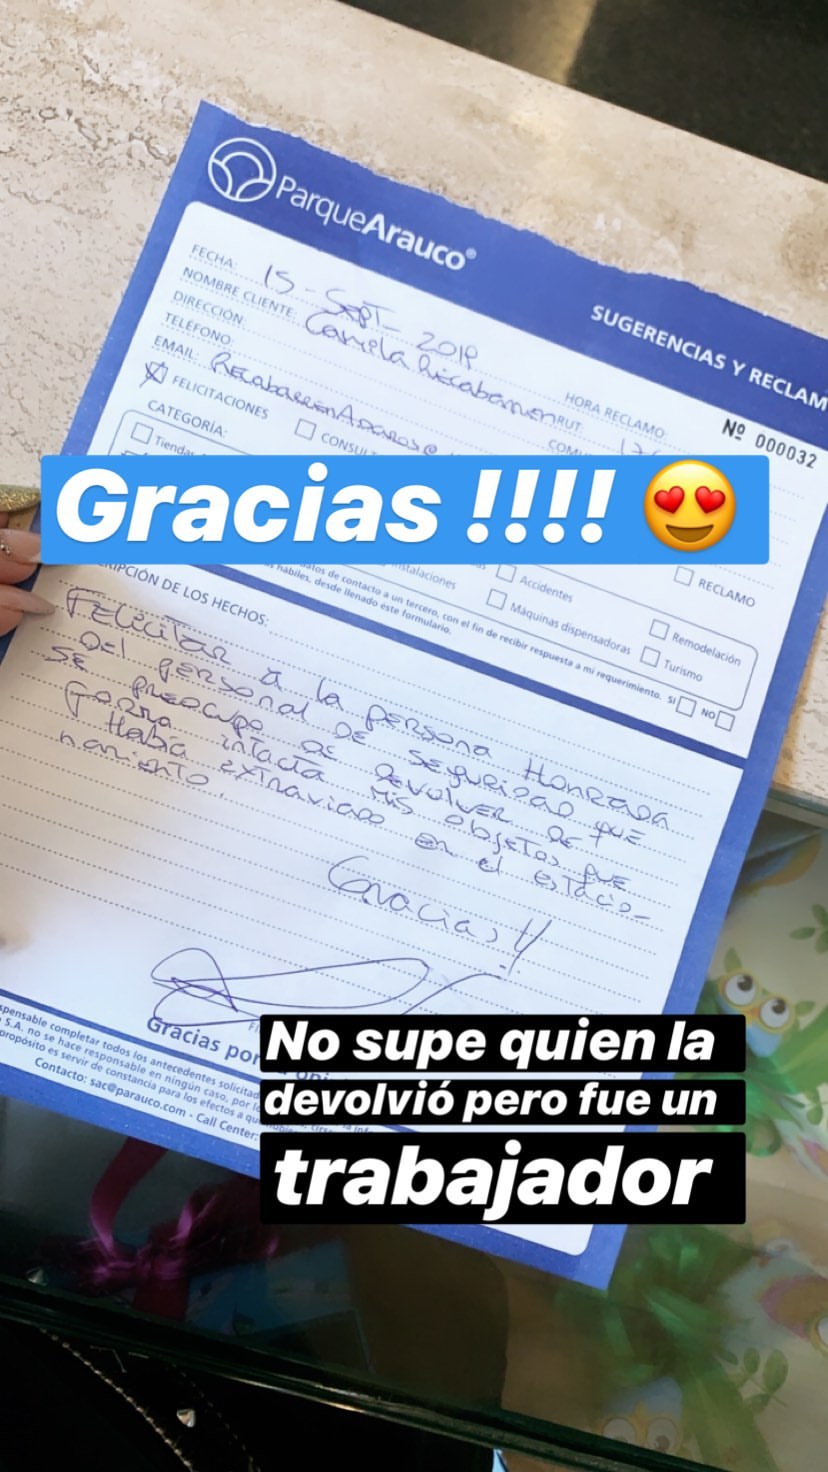 ParqueArauco®
SUGERENCIAS Y RECLAM
Nº 000032
FECHA: 15 - SEPT - 2019
HORA RECLAMO:
NOMBRE CLIENTE: Camila Recabarren
RUT:
DIRECCIÓN:
TELÉFONO:
EMAIL:
FELICITACIONES
CONSUL
RECLAMO
CATEGORÍA:
Tiendas
Gracias !!!! 😍
nstalaciones
Accidentes
Máquinas dispensadoras
Remodelación
Turismo
datos de contacto a un tercero, con el fin de recibir respuesta a mi requerimiento. SI NO
as hábiles, desde llenado este formulario.
CRIPCIÓN DE LOS HECHOS:
FELICITAR a la persona Honrada
DEL personal DE SEGURIDAD que
SE preocupo DE DEVOLVER DE
Forma intacta mis objetos que
Había extraviado en el estacio-
namiento.
Gracias!!
Gracias por
spensable completar todos los antecedentes solicitad
S.A. no se hace responsable en ningún caso, por l
propósito es servir de constancia para los efectos a qu
Contacto: sac@parauco.com - Call Center:
No supe quien la
devolvió pero fue un
trabajador